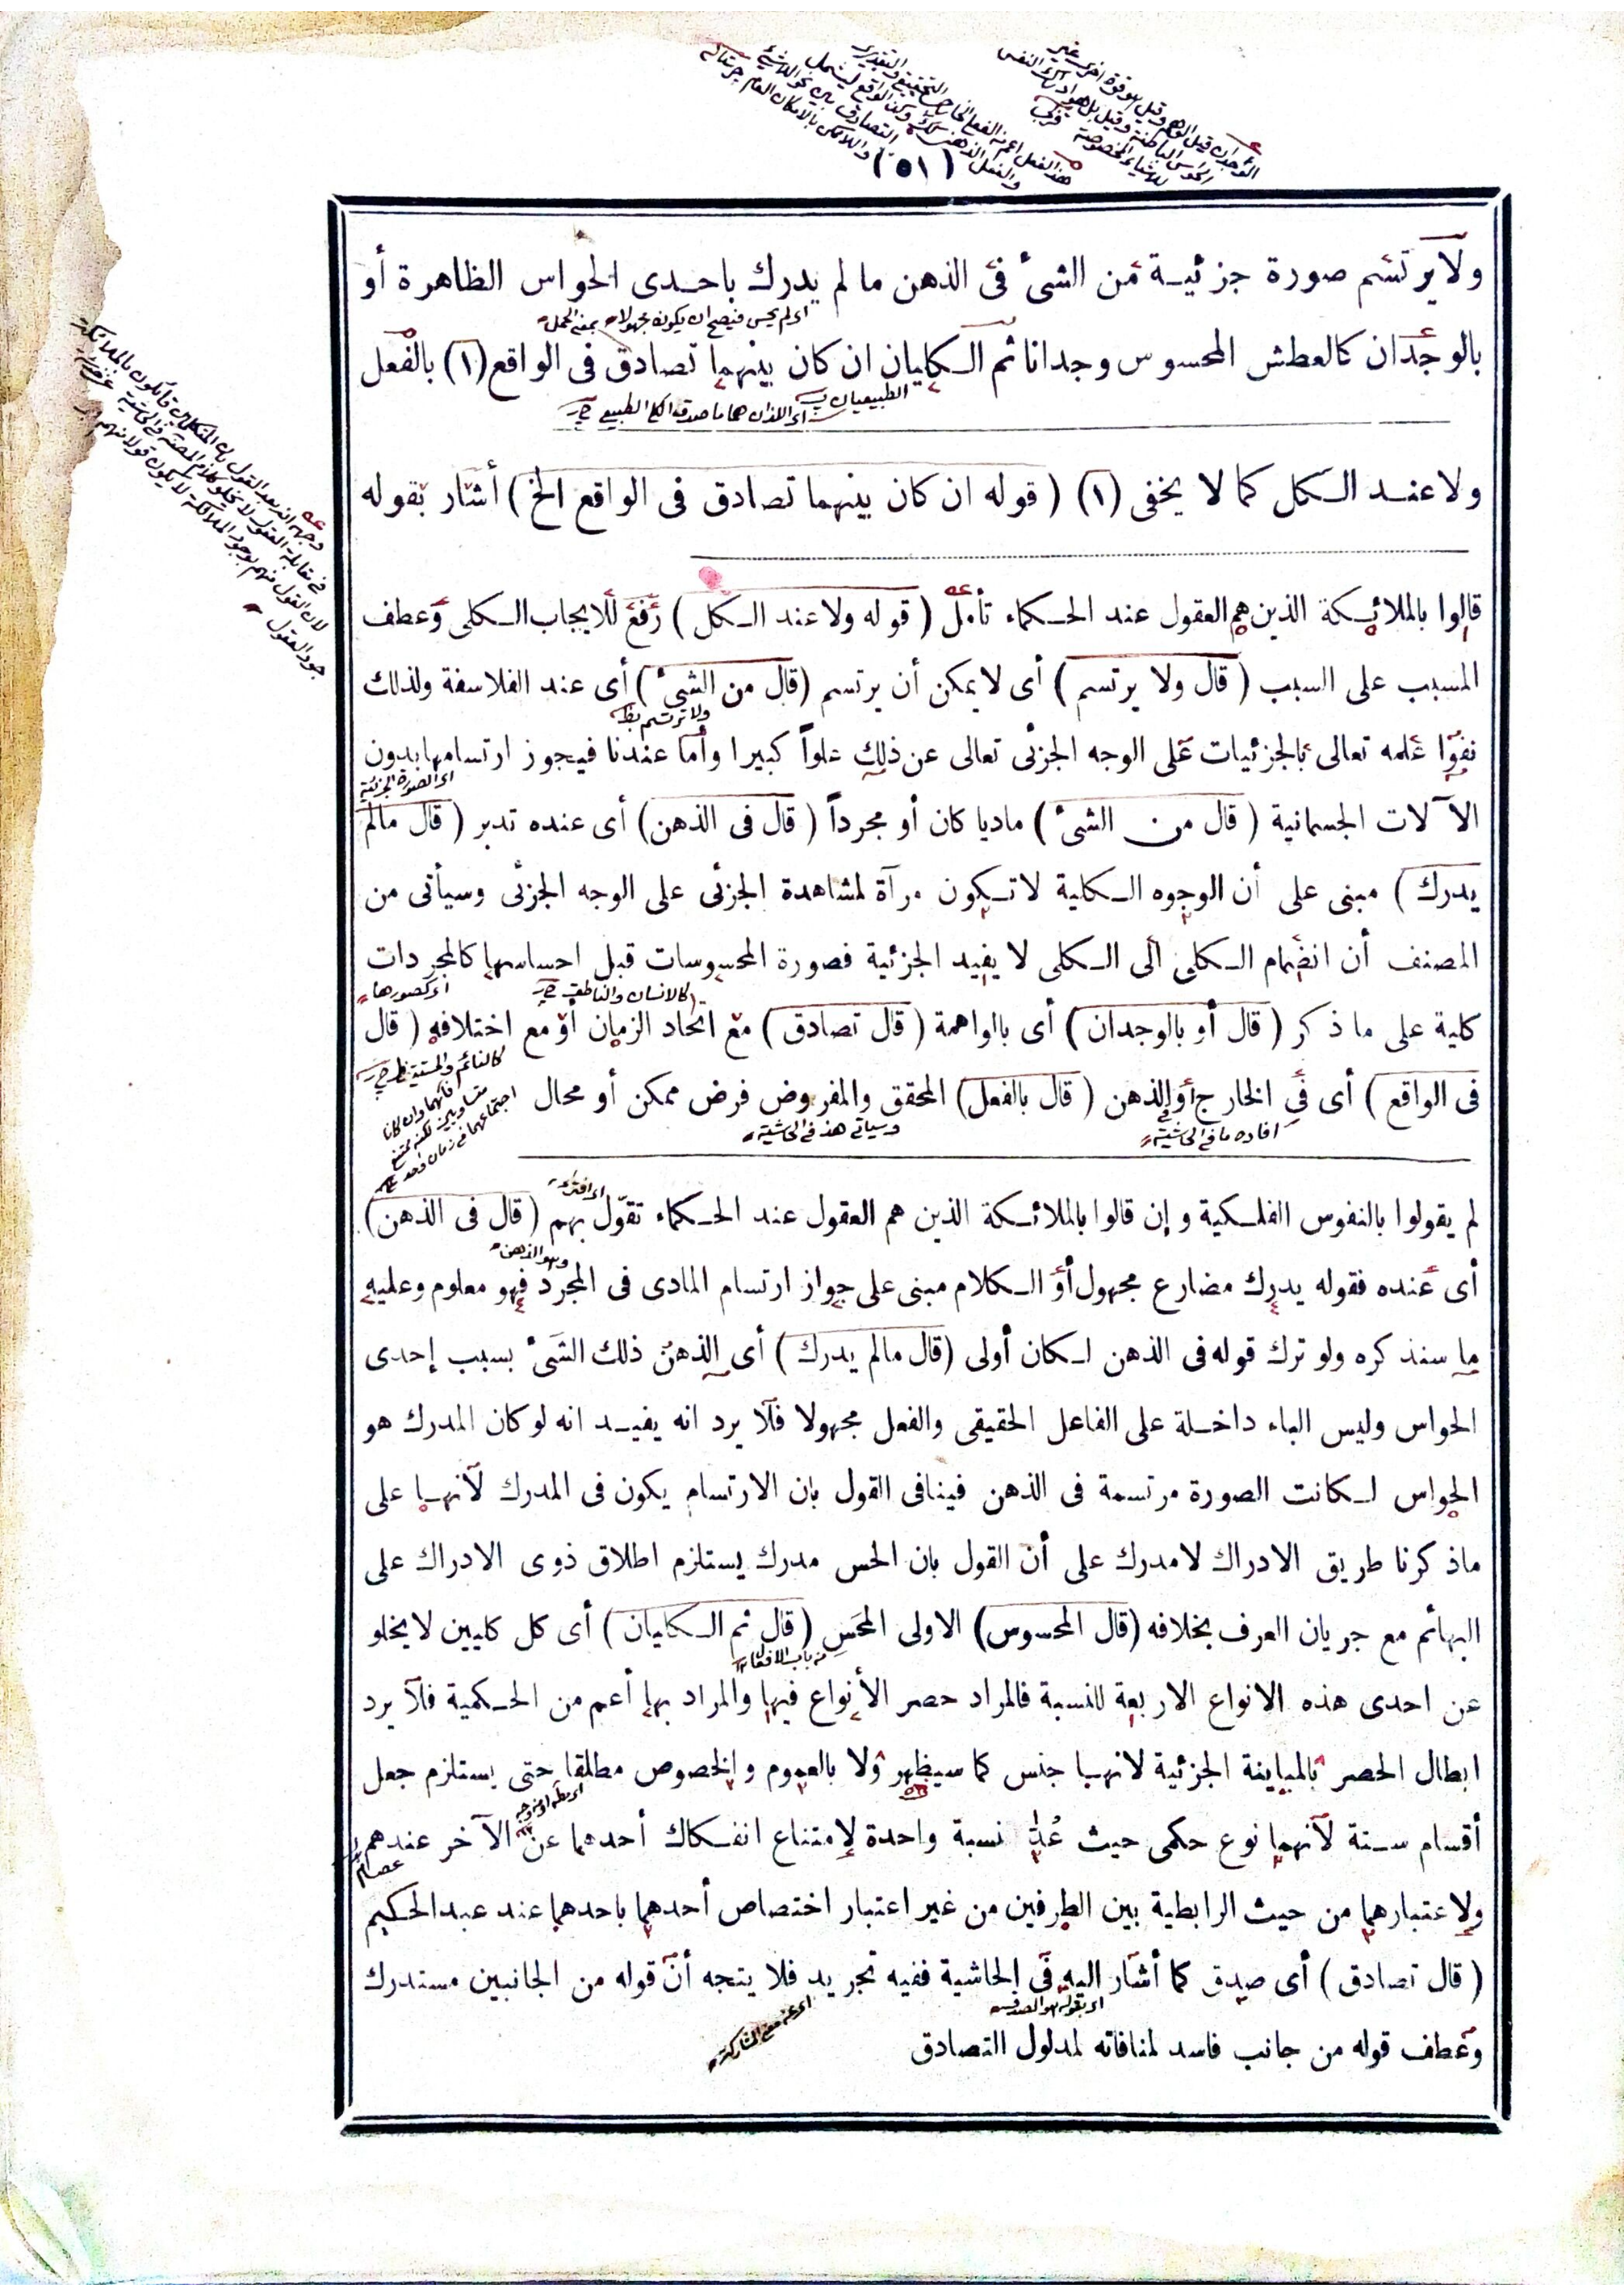 (٥١)
ولا يرتسم صورة جزئية من الشئ فى الذهن ما لم يدرك باحدى الحواس الظاهرة أو
بالوجدان كالعطش المحسوس وجدانا ثم الكليان ان كان بينهما تصادق فى الواقع (١) بالفعل
الطبيعيان
ولا عند الكل كما لا يخفى (١) (قوله ان كان بينهما تصادق فى الواقع الخ) أشار بقوله
قالوا بالملائكة الذين هم العقول عند الحكماء تأمل (قوله ولا عند الكل) رفع للايجاب الكلى وعطف
المسبب على السبب (قال ولا يرتسم) أى لا يمكن أن يرتسم (قال من الشئ) أى عند الفلاسفة ولذلك
نفوا علمه تعالى بالجزئيات على الوجه الجزئى تعالى عن ذلك علواً كبيرا وأما عندنا فيجوز ارتسامها بدون
اى الصورة الجزئية
الآلات الجسمانية (قال من الشئ) ماديا كان أو مجرداً (قال فى الذهن) أى عنده تدبر (قال مالم
يدرك) مبنى على أن الوجوه الكلية لا تكون مرآة لمشاهدة الجزئى على الوجه الجزئى وسيأتى من
المصنف أن انضمام الكلى الى الكلى لا يفيد الجزئية فصورة المحسوسات قبل احساسها كالمجردات
اى كصورها
كالانسان والناطق
كلية على ما ذكر (قال أو بالوجدان) أى بالواهمة (قال تصادق) مع اتحاد الزمان أو مع اختلافه (قال
كالنائم والمستيقظ
فى الواقع) أى فى الخارج أو الذهن (قال بالفعل) المحقق والمفروض فرض ممكن أو محال
افاده ما فى الحاشية
وسياتى هذا فى الحاشية
لم يقولوا بالنفوس الفلكية و إن قالوا بالملائكة الذين هم العقول عند الحكماء تقوّل بهم (قال فى الذهن)
وهو الذهن
أى عنده فقوله يدرك مضارع مجهول أو الكلام مبنى على جواز ارتسام المادى فى المجرد فهو معلوم وعليه
ما سنذكره ولو ترك قوله فى الذهن لكان أولى (قال مالم يدرك) أى الذهنُ ذلك الشَئ بسبب إحدى
الحواس وليس الباء داخلة على الفاعل الحقيقى والفعل مجهولا فلا يرد انه يفيد انه لو كان المدرك هو
الحواس لكانت الصورة مرتسمة فى الذهن فينافى القول بان الارتسام يكون فى المدرك لأنها على
ماذكرنا طريق الادراك لا مدرك على أن القول بان الحس مدرك يستلزم اطلاق ذوى الادراك على
البهائم مع جريان العرف بخلافه (قال المحسوس) الاولى المحَس (قال ثم الكليان) أى كل كليين لا يخلو
من باب الافعال
عن احدى هذه الانواع الاربعة للنسبة فالمراد حصر الأنواع فيها والمراد بها أعم من الحكمية فلا يرد
ابطال الحصر بالمباينة الجزئية لانها جنس كما سيظهر ولا بالعموم والخصوص مطلقا حتى يستلزم جعل
أقسام ستة لأنهما نوع حكمى حيث عُدّا نسبة واحدة لإمتناع انفكاك أحدهما عن الآخر عندهم
عصام
ولاعتبارهما من حيث الرابطية بين الطرفين من غير اعتبار اختصاص أحدهما باحدهما عند عبدالحكيم
(قال تصادق) أى صدق كما أشار اليه فى الحاشية ففيه تجريد فلا يتجه أنّ قوله من الجانبين مستدرك
اى بقوله هو الصدق
اى عن معنى المشاركة
وعطف قوله من جانب فاسد لمنافاته لمدلول التصادق